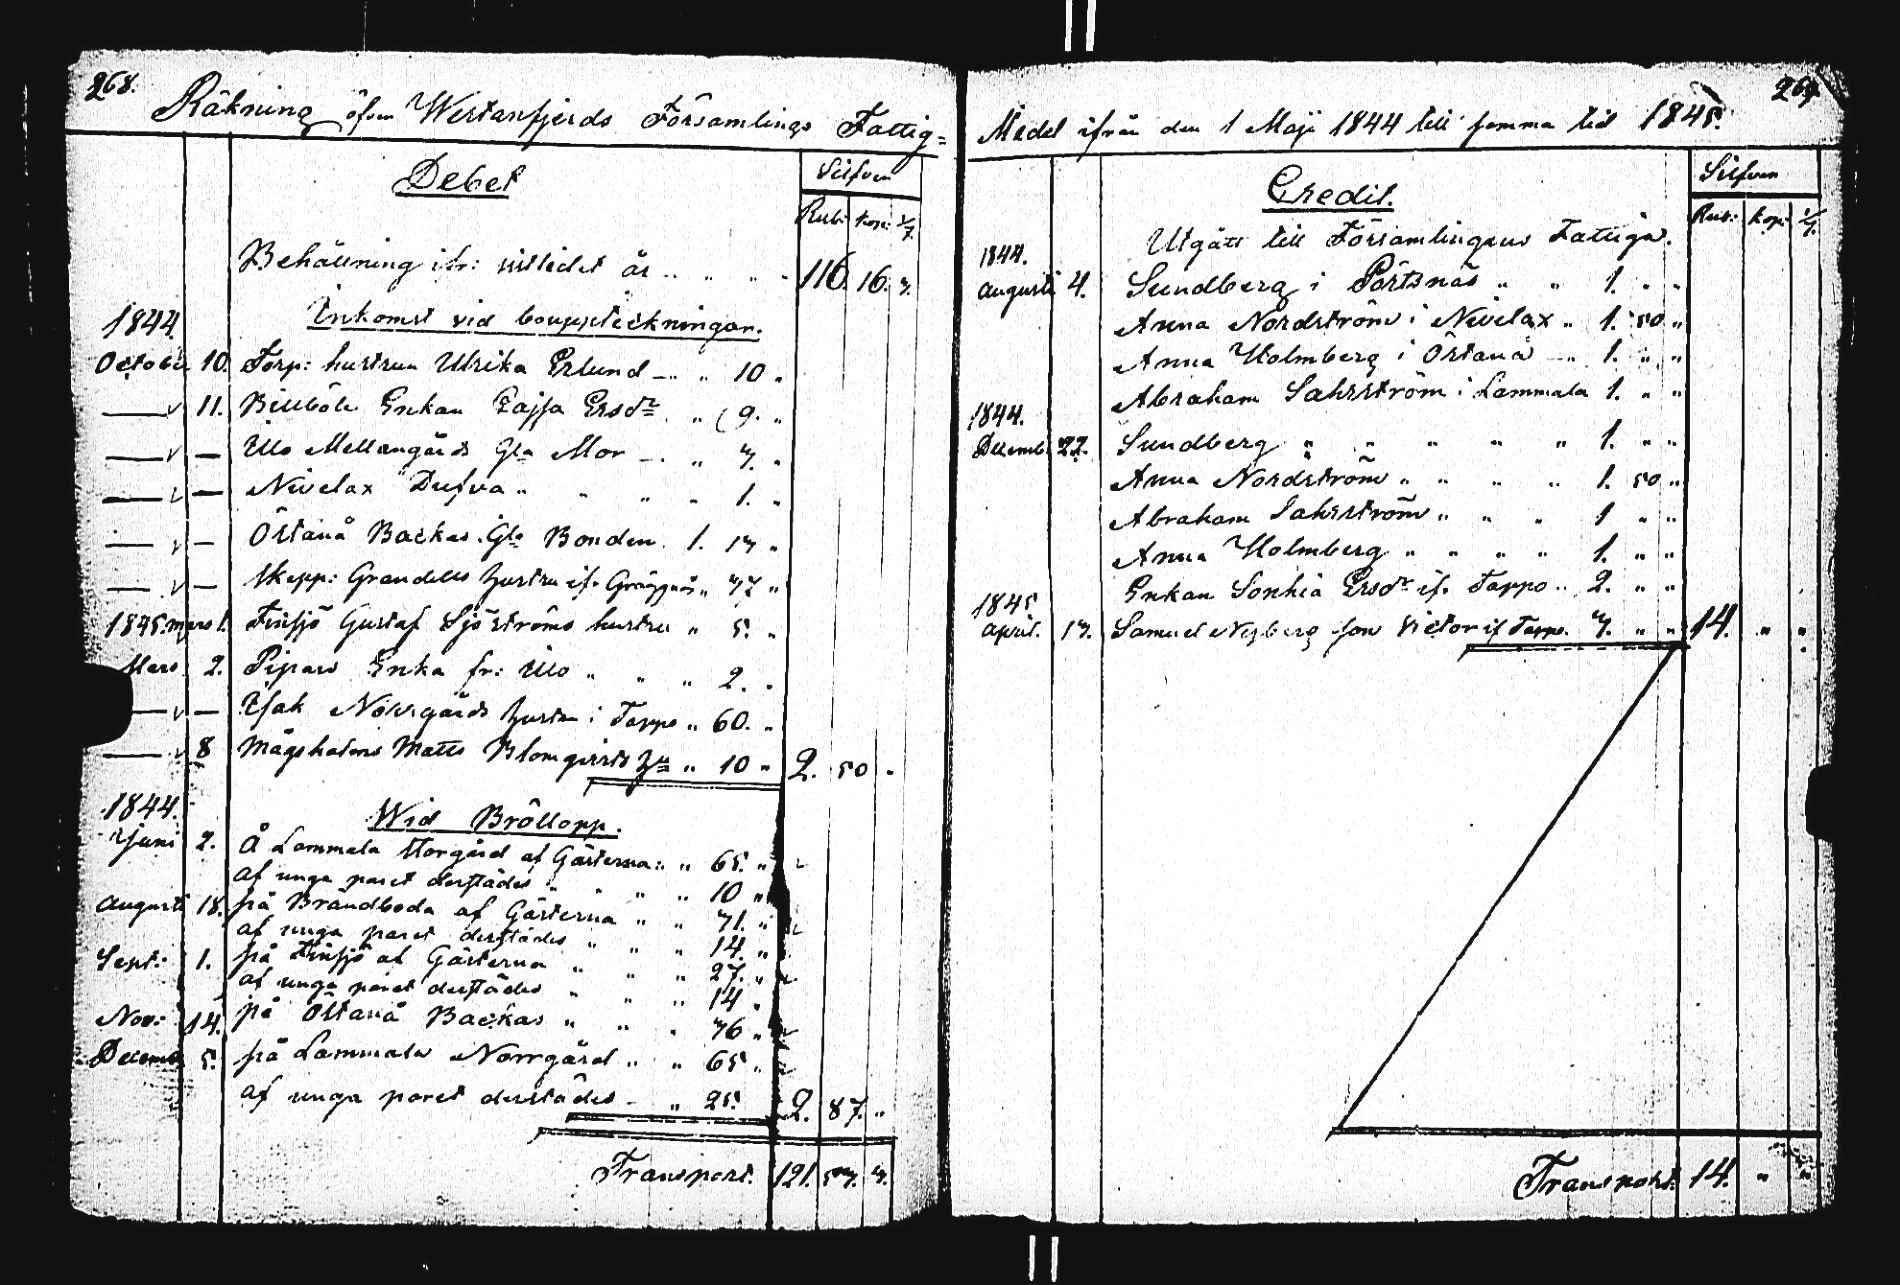 268.
Räkning öfver Westanfjerds Församlings Fattig=
Debet
Silfver
Rub: kop: 1/7.
Behållning ifr: sistledet år " " " " 116. 16. 3.
1844. Inkomst vid bouppteckningar.
October 10. Torp: hustrun Ulrika Erlund — " 10 "
— v 11. Billböle Enkan Cajsa Ersdr " 9. "
— v — Illo Mellangårds Gla Mor — . " 3. "
— v — Nivelax Dufva " " " " 1. "
— v — Östanå Backas Gla Bonden. 1. 13 "
— v — Skepp: Grandells hustru if. Gräggnäs " 37 "
1845. mars 1. Finsjö Gustaf Sjöströms hustru " 5. "
Mars 2. Pipars Enka fr: Illo " " " 2. "
— v — Isak Norrgårds hustru i Tappo " 60. "
— v 8 Mågsholms Matts Blomqvists hu " 10 " 2. 50 "
1844. Wid Bröllopp.
Juni 2. Å Lammala Storgård af Gästerna: " 65. "
af unga paret derstädes " " " " 10 "
Augusti 18. på Brändboda af Gästerna " " 71. "
af unga paret derstädes " " " 14. "
Sept: 1. på Finsjö af Gästerna " " " 27. "
af unga paret derstädes " " " 14 "
Nov: 14. på Östanå Backas " " " 36 "
Decemb 5. på Lammala Norrgård " " 65. "
af unga paret derstädes — " 25. 2. 87. "
Transport. 121. 53. 3.
269.
Medel ifrån den 1 Maji 1844 till samma tid 1845.
Credit.
Silfver
Rub: kop: 1/7.
Utgått till Församlingens Fattiga.
1844.
Augusti 4. Sundberg i Pörtsnäs " " 1. " "
Anna Nordström i Nivelax " 1. 50 "
Anna Holmberg i Östanå — " 1. " "
Abraham Sahrström i Lammala 1. " "
1844.
Decemb: 22. Sundberg " " " " " 1. " "
Anna Nordström " " " " 1. 50 "
Abraham Sahrström " " " 1 " "
Anna Holmberg " " " " 1. " "
Enkan Sophia Ersdr if. Tappo " 2. " "
1845
April. 13. Samuel Nygberg son Victor if Tappo. 3. " " 14. " "
Transport. 14. " "